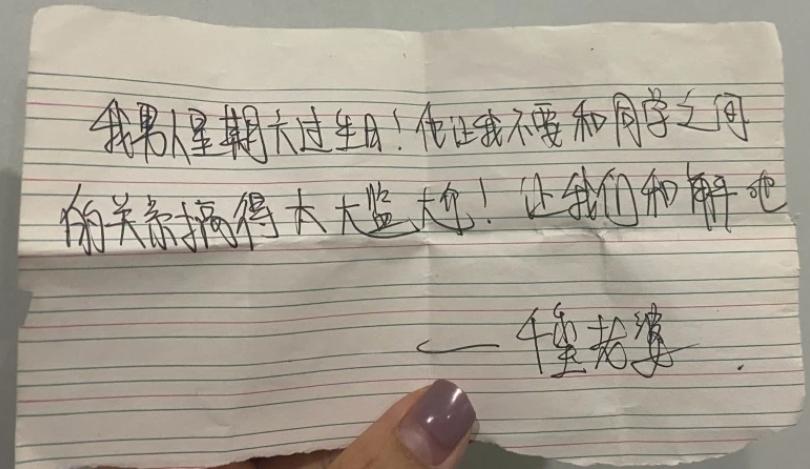 我男人星期六过生日！他让我不要和同学之间
的关系搞得太大尴尬！让我们和解吧
——千玺老婆.